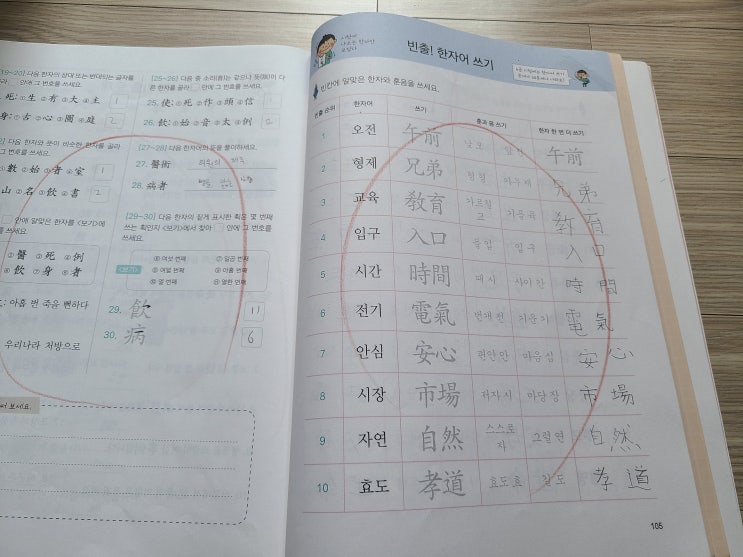 [19~20] 다음 한자의 상대 또는 반대되는 글자를
골라 안에 그 번호를 쓰세요.
死: ①生 ②有 ③大 ④主 1
身: ①古 ②心 ③圖 ④庭 2
다음 한자와 뜻이 비슷한 한자를 골라
번호를 쓰세요.
①數 ②始 ③者 ④室 1
①山 ②名 ③飮 ④書 2
안에 알맞은 한자를 <보기>에서
번호를 쓰세요.
①醫 ②死 ③例
④飮 ⑤身 ⑥者
: 아홉 번 죽을 뻔하다
우리나라 처방으로
써 보세요.
[25~26] 다음 중 소리(音)는 같으나 뜻(訓)이 다
른 한자를 골라 안에 그 번호를 쓰세요.
25. 使: ①死 ②作 ③頭 ④信 1
26. 飮: ①始 ②音 ③太 ④例 2
[27~28] 다음 한자어의 뜻을 풀이하세요.
27. 醫術
28. 病者
[29~30] 다음 한자의 짙게 표시한 획은 몇 번째
쓰는 획인지 <보기>에서 찾아 안에 그 번호를
쓰세요.
<보기>
⑥ 여섯 번째 ⑦ 일곱 번째
⑧ 여덟 번째 ⑨ 아홉 번째
⑩ 열 번째 ⑪ 열한 번째
29. 飮 11
30. 病 6
빈출! 한자어 쓰기
빈칸에 알맞은 한자와 훈음을 쓰세요.
빈출 순위 한자어 쓰기 훈과 음 쓰기 한자 한 번 더 쓰기
1 오전 午前 낮 오 앞 전 午前
2 형제 兄弟 형 형 아우 제 兄弟
3 교육 敎育 가르칠 교 기를 육 敎育
4 입구 入口 들 입 입 구 入口
5 시간 時間 때 시 사이 간 時間
6 전기 電氣 번개 전 기운 기 電氣
7 안심 安心 편안 안 마음 심 安心
8 시장 市場 저자 시 마당 장 市場
9 자연 自然 스스로 자 그럴 연 自然
10 효도 孝道 효도 효 길 도 孝道
105